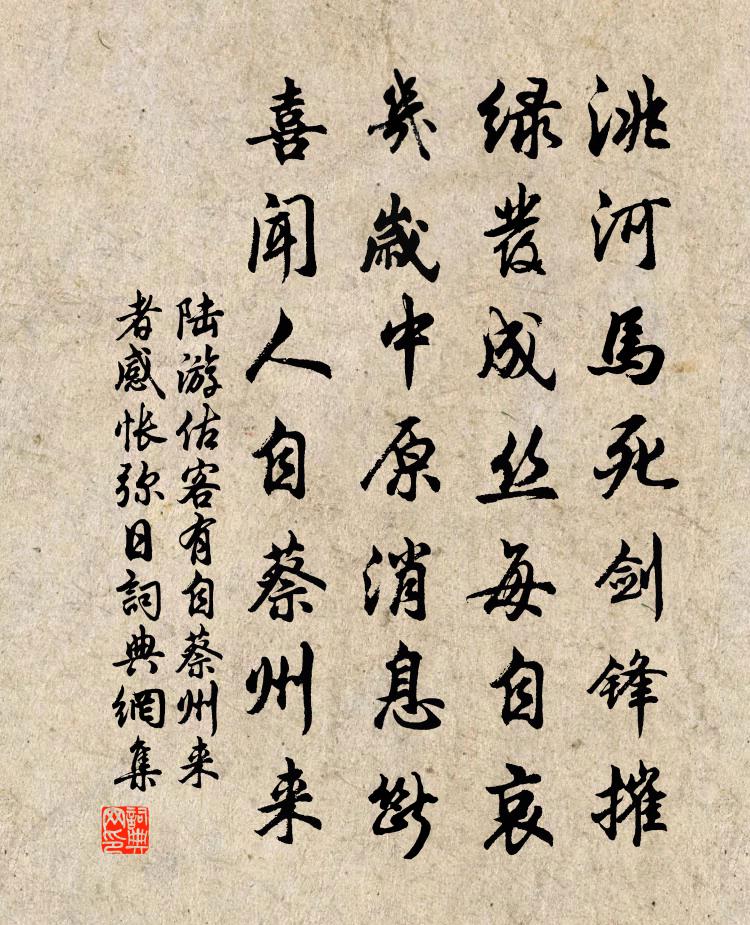 洮河馬死剑锋摧
绿發成丝每自哀
幾歲中原消息斷
喜闻人自蔡州来
陆游估客有自蔡州来
者感怅弥日詞典網集
詞典
网印